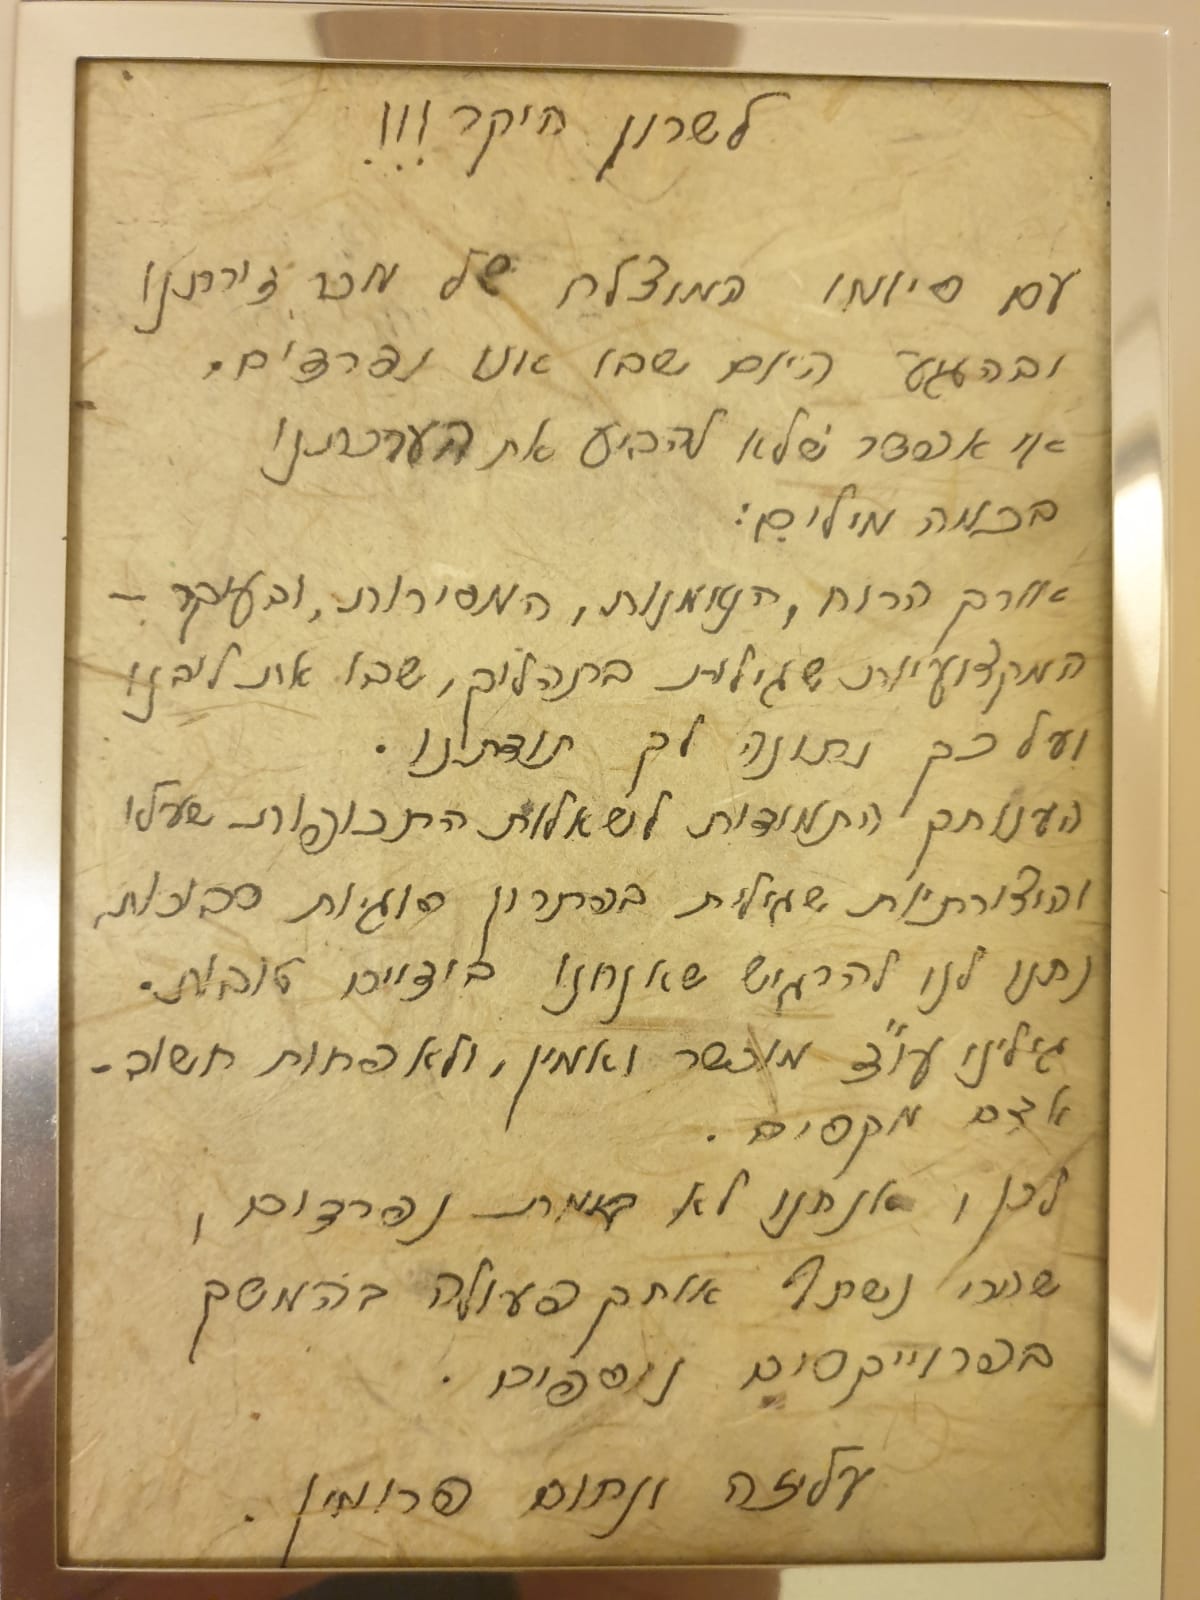 לשרון היקר!!!
עם סיומו המוצלח של מכר דירתנו
ובהגיע היום שבו אנו נפרדים.
אי אפשר שלא להביע את הערכתנו
בכמה מילים:
אורך הרוח, הנאמנות, המסירות, ובעיקר -
המקצועיות שגילית בתהליך, שבו את ליבנו
ועל כך נתונה לך תודתנו.
הענותך התמידית לשאלות התכופות שעלו
והיצירתיות שגילית בפתרון סוגיות סבוכות
נתנו לנו להרגיש שאנחנו בידיים טובות.
גילינו עו"ד מוכשר ואמין, ולא פחות חשוב -
אדם מקסים.
לכן, אנחנו לא באמת נפרדים,
שהרי נשתף אתך פעולה בהמשך
בפרוייקטים נוספים.
עליזה ונחום פרומין.